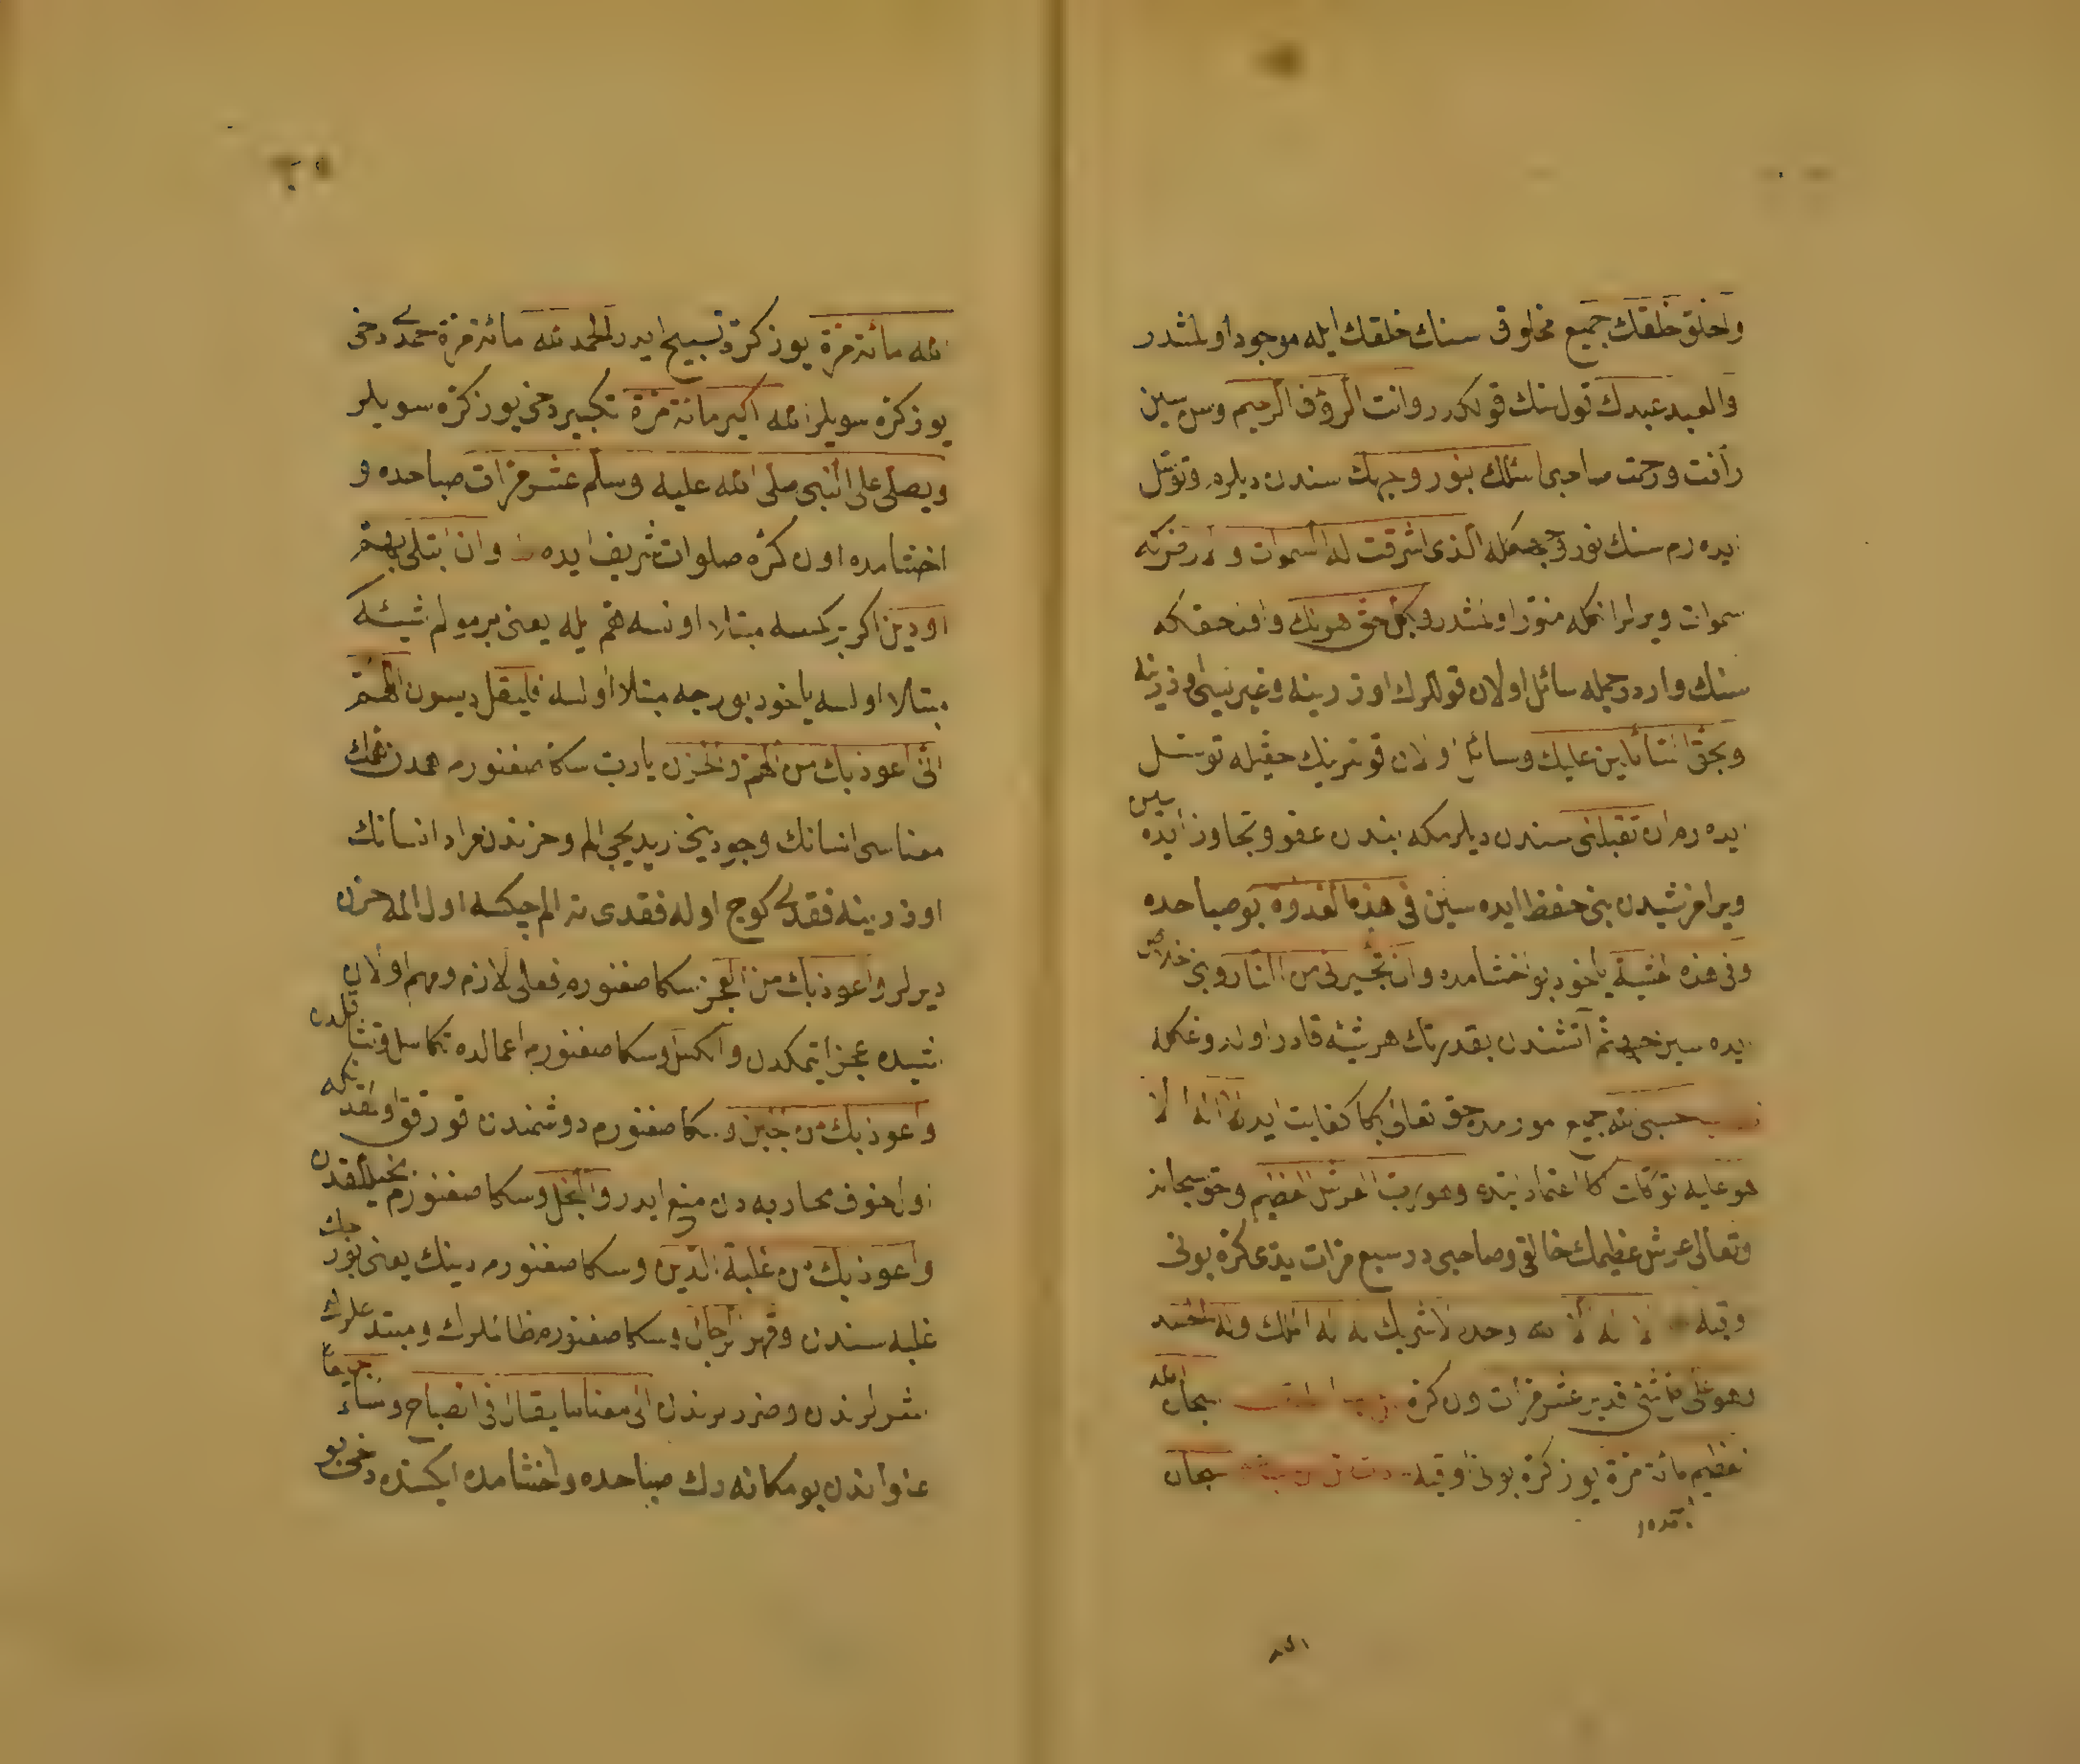 والخلق خلقك جميع مخلوق سنك خلقك ايله موجود اولمشدر
والعبد عبدك قول سنك قولكدر وانت الرؤف الرحيم وسن سين
رأفت ورحمت صاحبى اسئلك بنور وجهك سندن ديلرم وتوسل
ايده رم سنك نور وجهكله الذى اشرقت له السموات والارض كه
سموات ويرلر انكله منور اولمشدر وبكل حق هو لك وافند حقكله
سنك واردر جمله سائل اولان قوللرك اوزرينه وغيرنيك اوزرينه
وبحق السائلين عليك وسائل اولان قوللرينك حقيله توسل
ايده رم ان تقبلنى سندن ديلرمكه بندن عفو وتجاوز ايده سين
ويرامز شيدن بنى حفظ ايده سين فى هذه الغدوة بو صباحده
وفى هذه العشية ياخود بو اخشامده وان تجيرنى من النار وبنى خلاص
ايده سين جهنم آتشندن بقدرتك هر شيئه قادر اولدوغكله
حسبى الله جميع امورمده حق تعالى بكا كفايت ايدر لا اله الا
هو عليه توكلت اكا اعتماد ايتدم وهو رب العرش العظيم وحق سبحانه
وتعالى عرش عظيمك خالقى وصاحبى در سبع مرات يدى كره بونى
وقيه لا اله الا الله وحده لا شريك له له الملك وله الحمد
وهو على كل شئ قدير عشر مرات اون كره سبحان الله
العظيم مائة مرة يوز كره بونى اوقيه سبحان
الله مائة مرة يوز كره تسبيح ايدر الحمد لله مائة مرة حمدى دخى
يوز كره سويلر الله اكبر مائة مرة تكبير دخى يوز كره سويلر
ويصلى على النبى صلى الله عليه وسلم عشر مرات صباحده و
اخشامده اون كره صلوات شريف ايده وان ابتلى بهم
اودين اكر بر كمسه مبتلا اولسه هم ايله يعنى بر مولم شيئه كه
مبتلا اولسه ياخود بورجه مبتلا اولسه فليقل ديسون اللهم
انى اعوذ بك من الهم والحزن يا رب سكا صغنورم همدن همك
معناسى انسانك وجودينى اريديجى الم وحزندن مراد انسانك
اوزرينه فقدى كوج اوله فقدى نه الم چكسه اول المه حزن
ديرلر واعوذ بك من العجز سكا صغنورم فعلى لازم ومهم اولان
شيده عجز ايتمكدن والكسل وسكا صغنورم اعمالده تكاسل
واعوذ بك من الجبن وسكا صغنورم دوشمندن قورقق اولقدن كه
اول خوف محاربه دن منع ايدر والبخل وسكا صغنورم بخيللقدن
واعوذ بك من غلبة الدين وسكا صغنورم دينك يعنى بورجك
غلبه سندن وقهر الرجال وسكا صغنورم ظالملرك ومبتدعلرك
شرلرندن وضررلرندن الى معنا ما يقال فى الصباح والمساء جميعا
عنواندن بو مكانه دك صباحده واخشامده ايكيسنده دخى بو